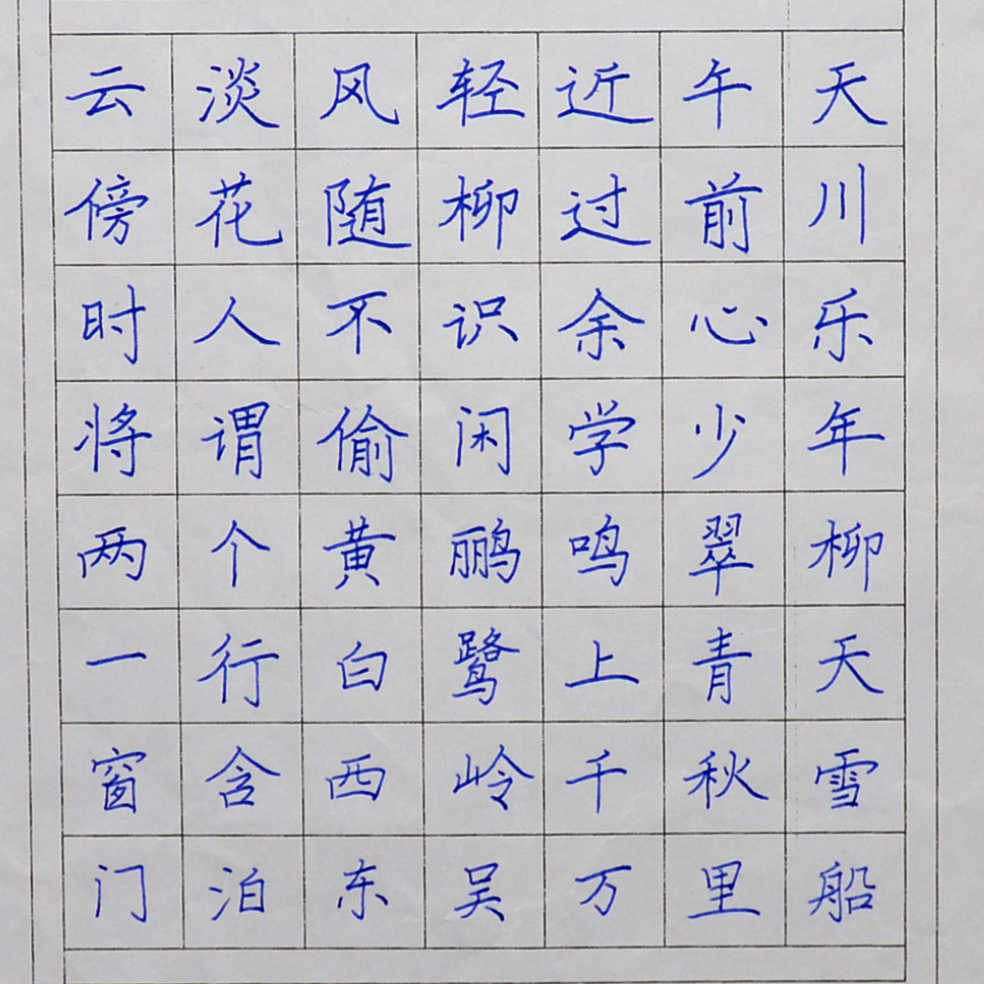 云淡风轻近午天
傍花随柳过前川
时人不识余心乐
将谓偷闲学少年
两个黄鹂鸣翠柳
一行白鹭上青天
窗含西岭千秋雪
门泊东吴万里船